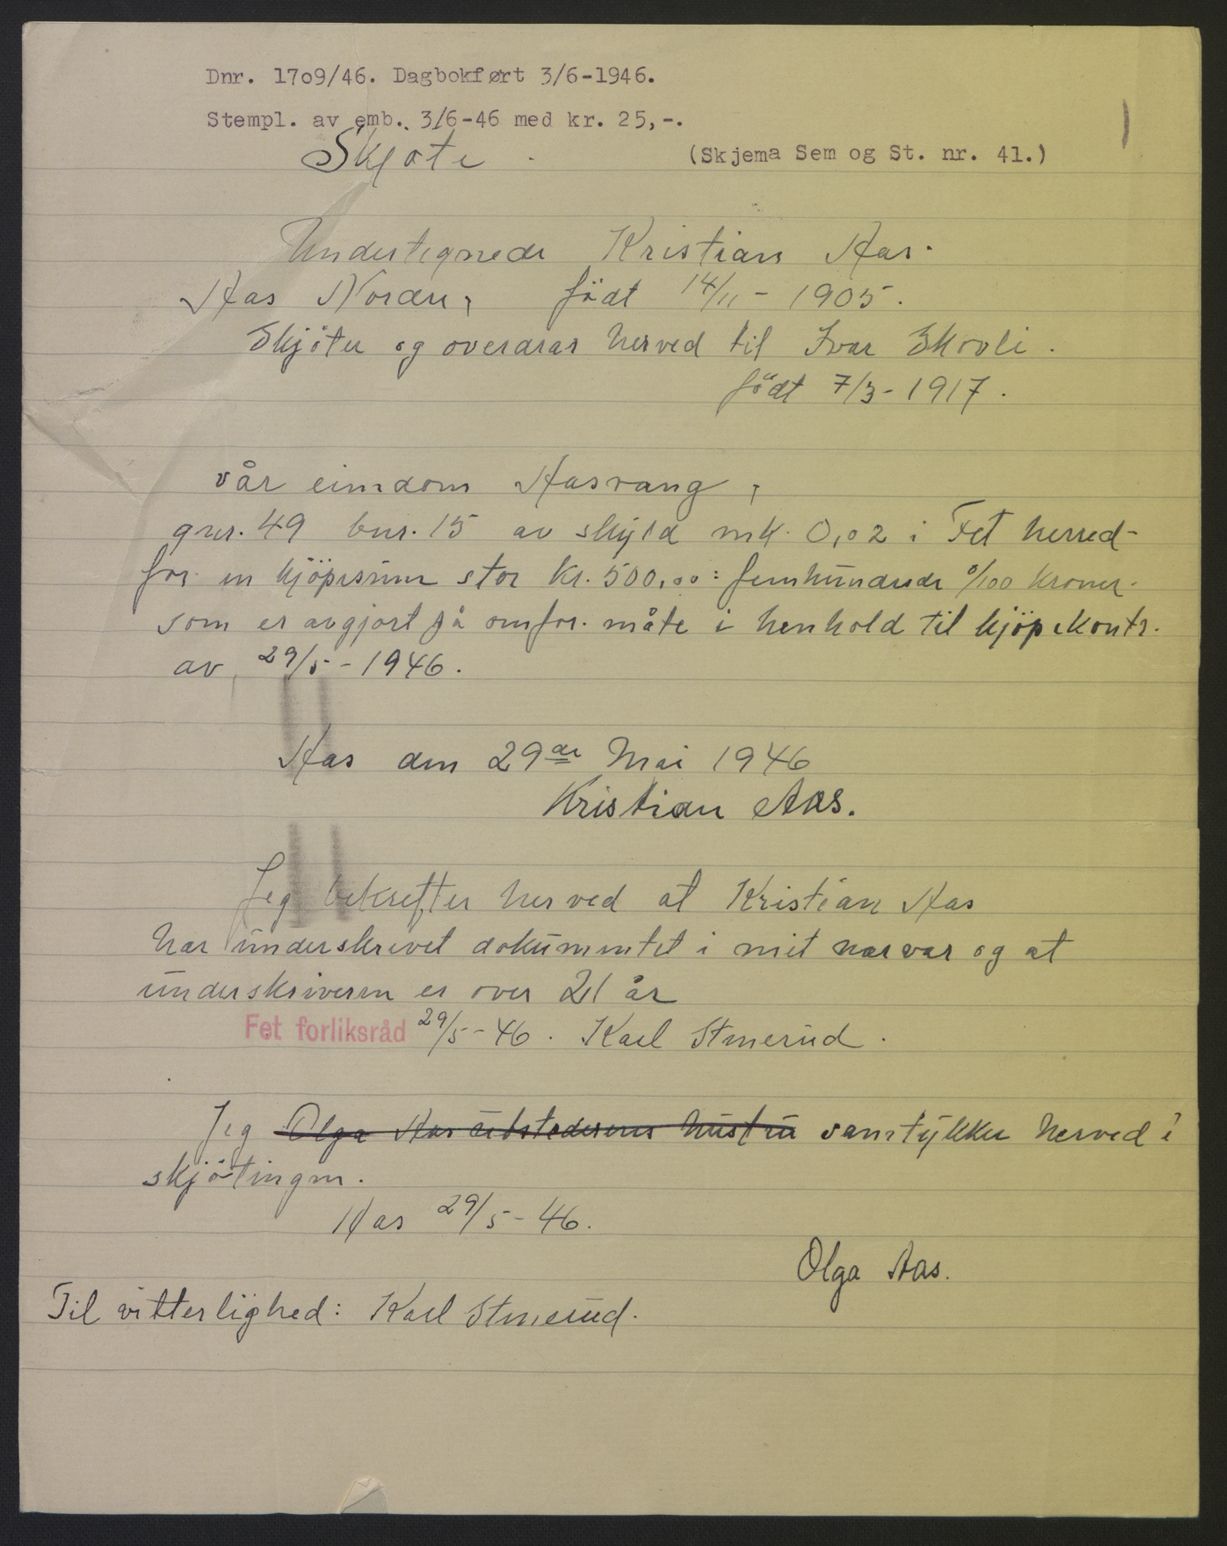 Dnr. 1709/46. Dagbokført 3/6-1946.
Stempl. av emb. 3/6-46 med kr. 25,-.
Skjøte.
(Skjema Sem og St. nr. 41.)
Undertegnede Kristian Aas.
Aas Nordre, født 14/11 - 1905.
Skjøter og overdrar herved til Ivar Skovli.
født 7/3 - 1917.
vår eiendom Aasvang,
gnr. 49 bnr. 15 av skyld mk. 0,02 i Fet herred-
for en kjøpesum stor kr. 500,00: femhundrede 0/100 kroner.
som er avgjort på omfor. måte i henhold til kjøpekontr.
av 29/5 - 1946.
Aas den 29de Mai 1946
Kristian Aas.
Jeg bekrefter herved at Kristian Aas
har underskrevet dokumentet i mit nærvær og at
underskriveren er over 21 år
Fet forliksråd 29/5 - 46. Karl Stenerud.
Jeg Olga Aas utstederens hustru samtykker herved i
skjøtingen.
Aas 29/5 - 46.
Olga Aas.
Til vitterlighed: Karl Stenerud.